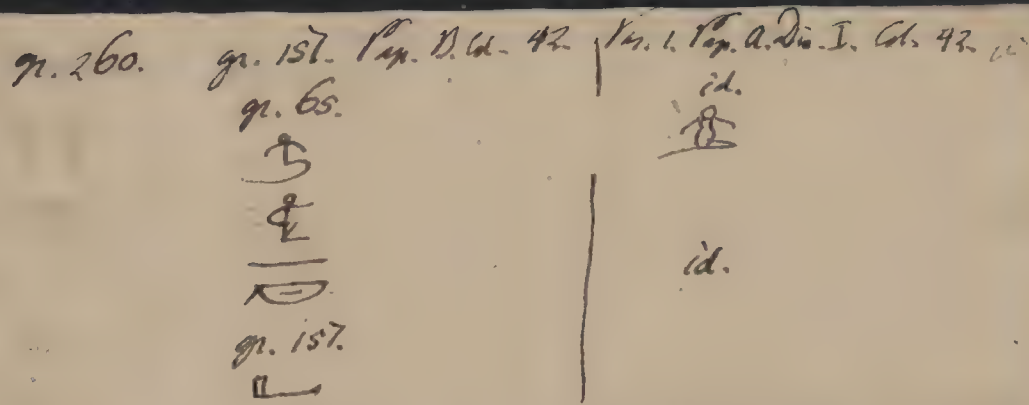 gr. 260. gr. 157. Pap. D. Col. 42. Var. 1. Pap. A. Div. I. Col. 42.
gr. 65. id.
id.
gr. 157.